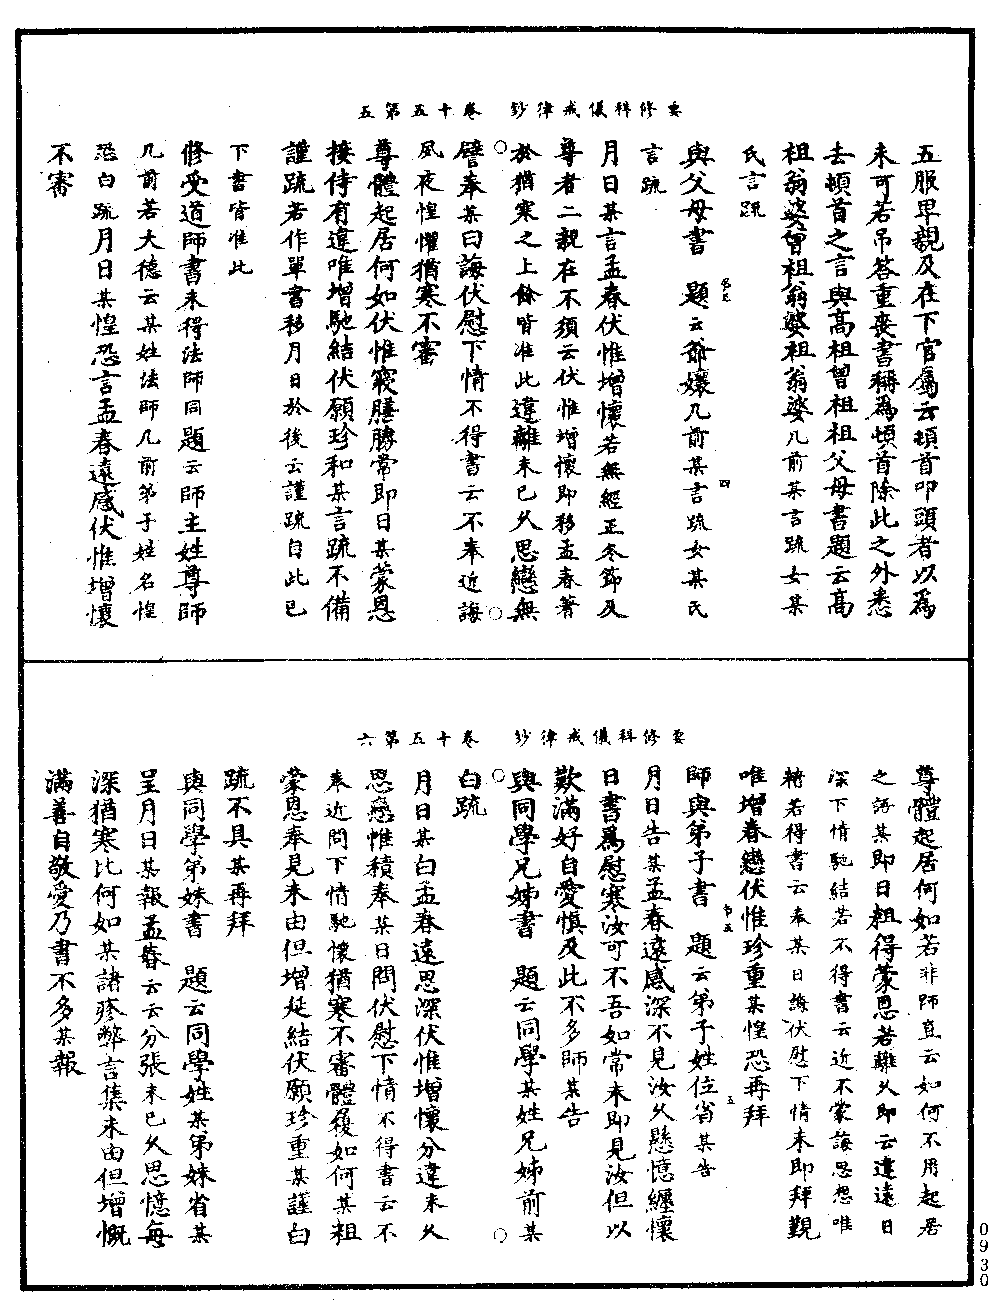 要修科儀戒律鈔　卷十五第五
五服卑親及在下官屬云頓首叩頭者以爲
未可若吊答重喪書稱爲頓首除此之外悉
去頓首之言與高祖曾祖祖父母書題云高
祖翁婆曾祖翁婆祖翁婆几前某言疏女某
氏言疏
與父母書　題云爺孃几前某言疏女某氏
言疏
月日某言孟春伏惟增懷若無經正冬節及
尊者二親在不須云伏惟增懷即移孟春著
於猶寒之上餘皆准此違離未已久思戀無
譬奉某日誨伏慰下情不得書云不奉近誨
夙夜惶懼猶寒不審
尊體起居何如伏惟寢膳勝常即日某蒙恩
接侍有違唯增馳結伏願珍和某言疏不備
謹疏若作單書移月日於後云謹疏自此已
下書皆准此
修受道師書未得法師同題云師主姓尊師
几前若大德云某姓法師几前弟子姓名惶
恐白疏月日某惶恐言孟春遠感伏惟增懷
不審
要修科儀戒律鈔　卷十五第六
尊體起居何如若非師直云如何不用起居
之語某即日粗得蒙恩若離久即云違遠日
深下情馳結若不得書云近不蒙誨思想唯
積若得書云奉某日誨伏慰下情未即拜覲
唯增眷戀伏惟珍重某惶恐再拜
師與弟子書　題云弟子姓位省某告
月日告某孟春遠感深不見汝久懸憶纏懷
日書爲慰寒汝可不吾如常未即見汝但以
歎滿好自愛慎及此不多師某告
與同學兄姊書　題云同學某姓兄姊前某
白疏
月日某白孟春遠思深伏惟增懷分違未久
思戀惟積奉某日問伏慰下情不得書云不
奉近問下情馳懷猶寒不審體履如何某粗
蒙恩奉見未由但增延結伏願珍重某謹白
疏不具某再拜
與同學弟妹書　題云同學姓某弟妹省某
呈月日某報孟春云云分張未已久思憶每
深猶寒比何如某諸疹弊言集未由但增慨
滿善自敬愛乃書不多某報
0930